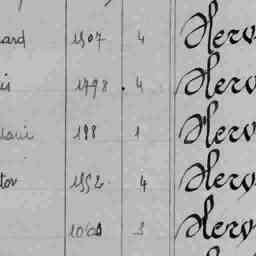 ard 1507 4 Herv
is 1798 4 Herv
198 1 Herv
tor 1552 4 Herv
3 Herv